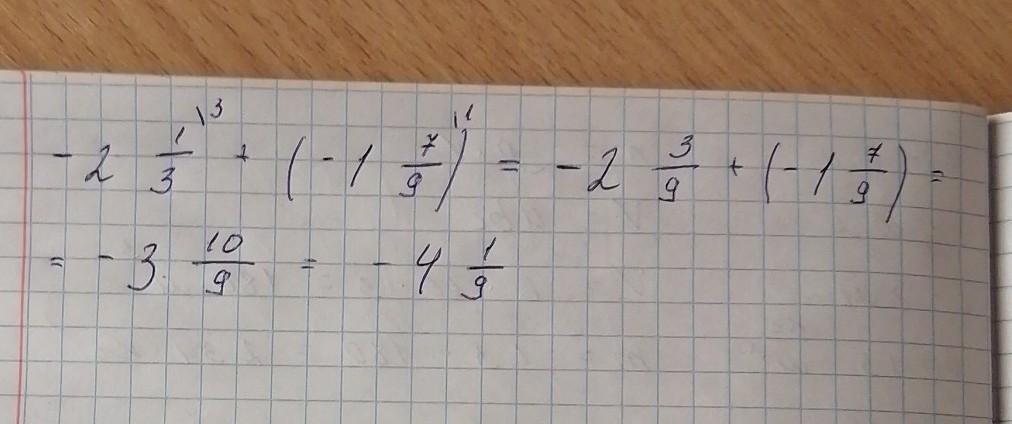 -2 1/3 \3 + (-1 7/9) \1 = -2 3/9 + (-1 7/9) =
= -3 10/9 = -4 1/9